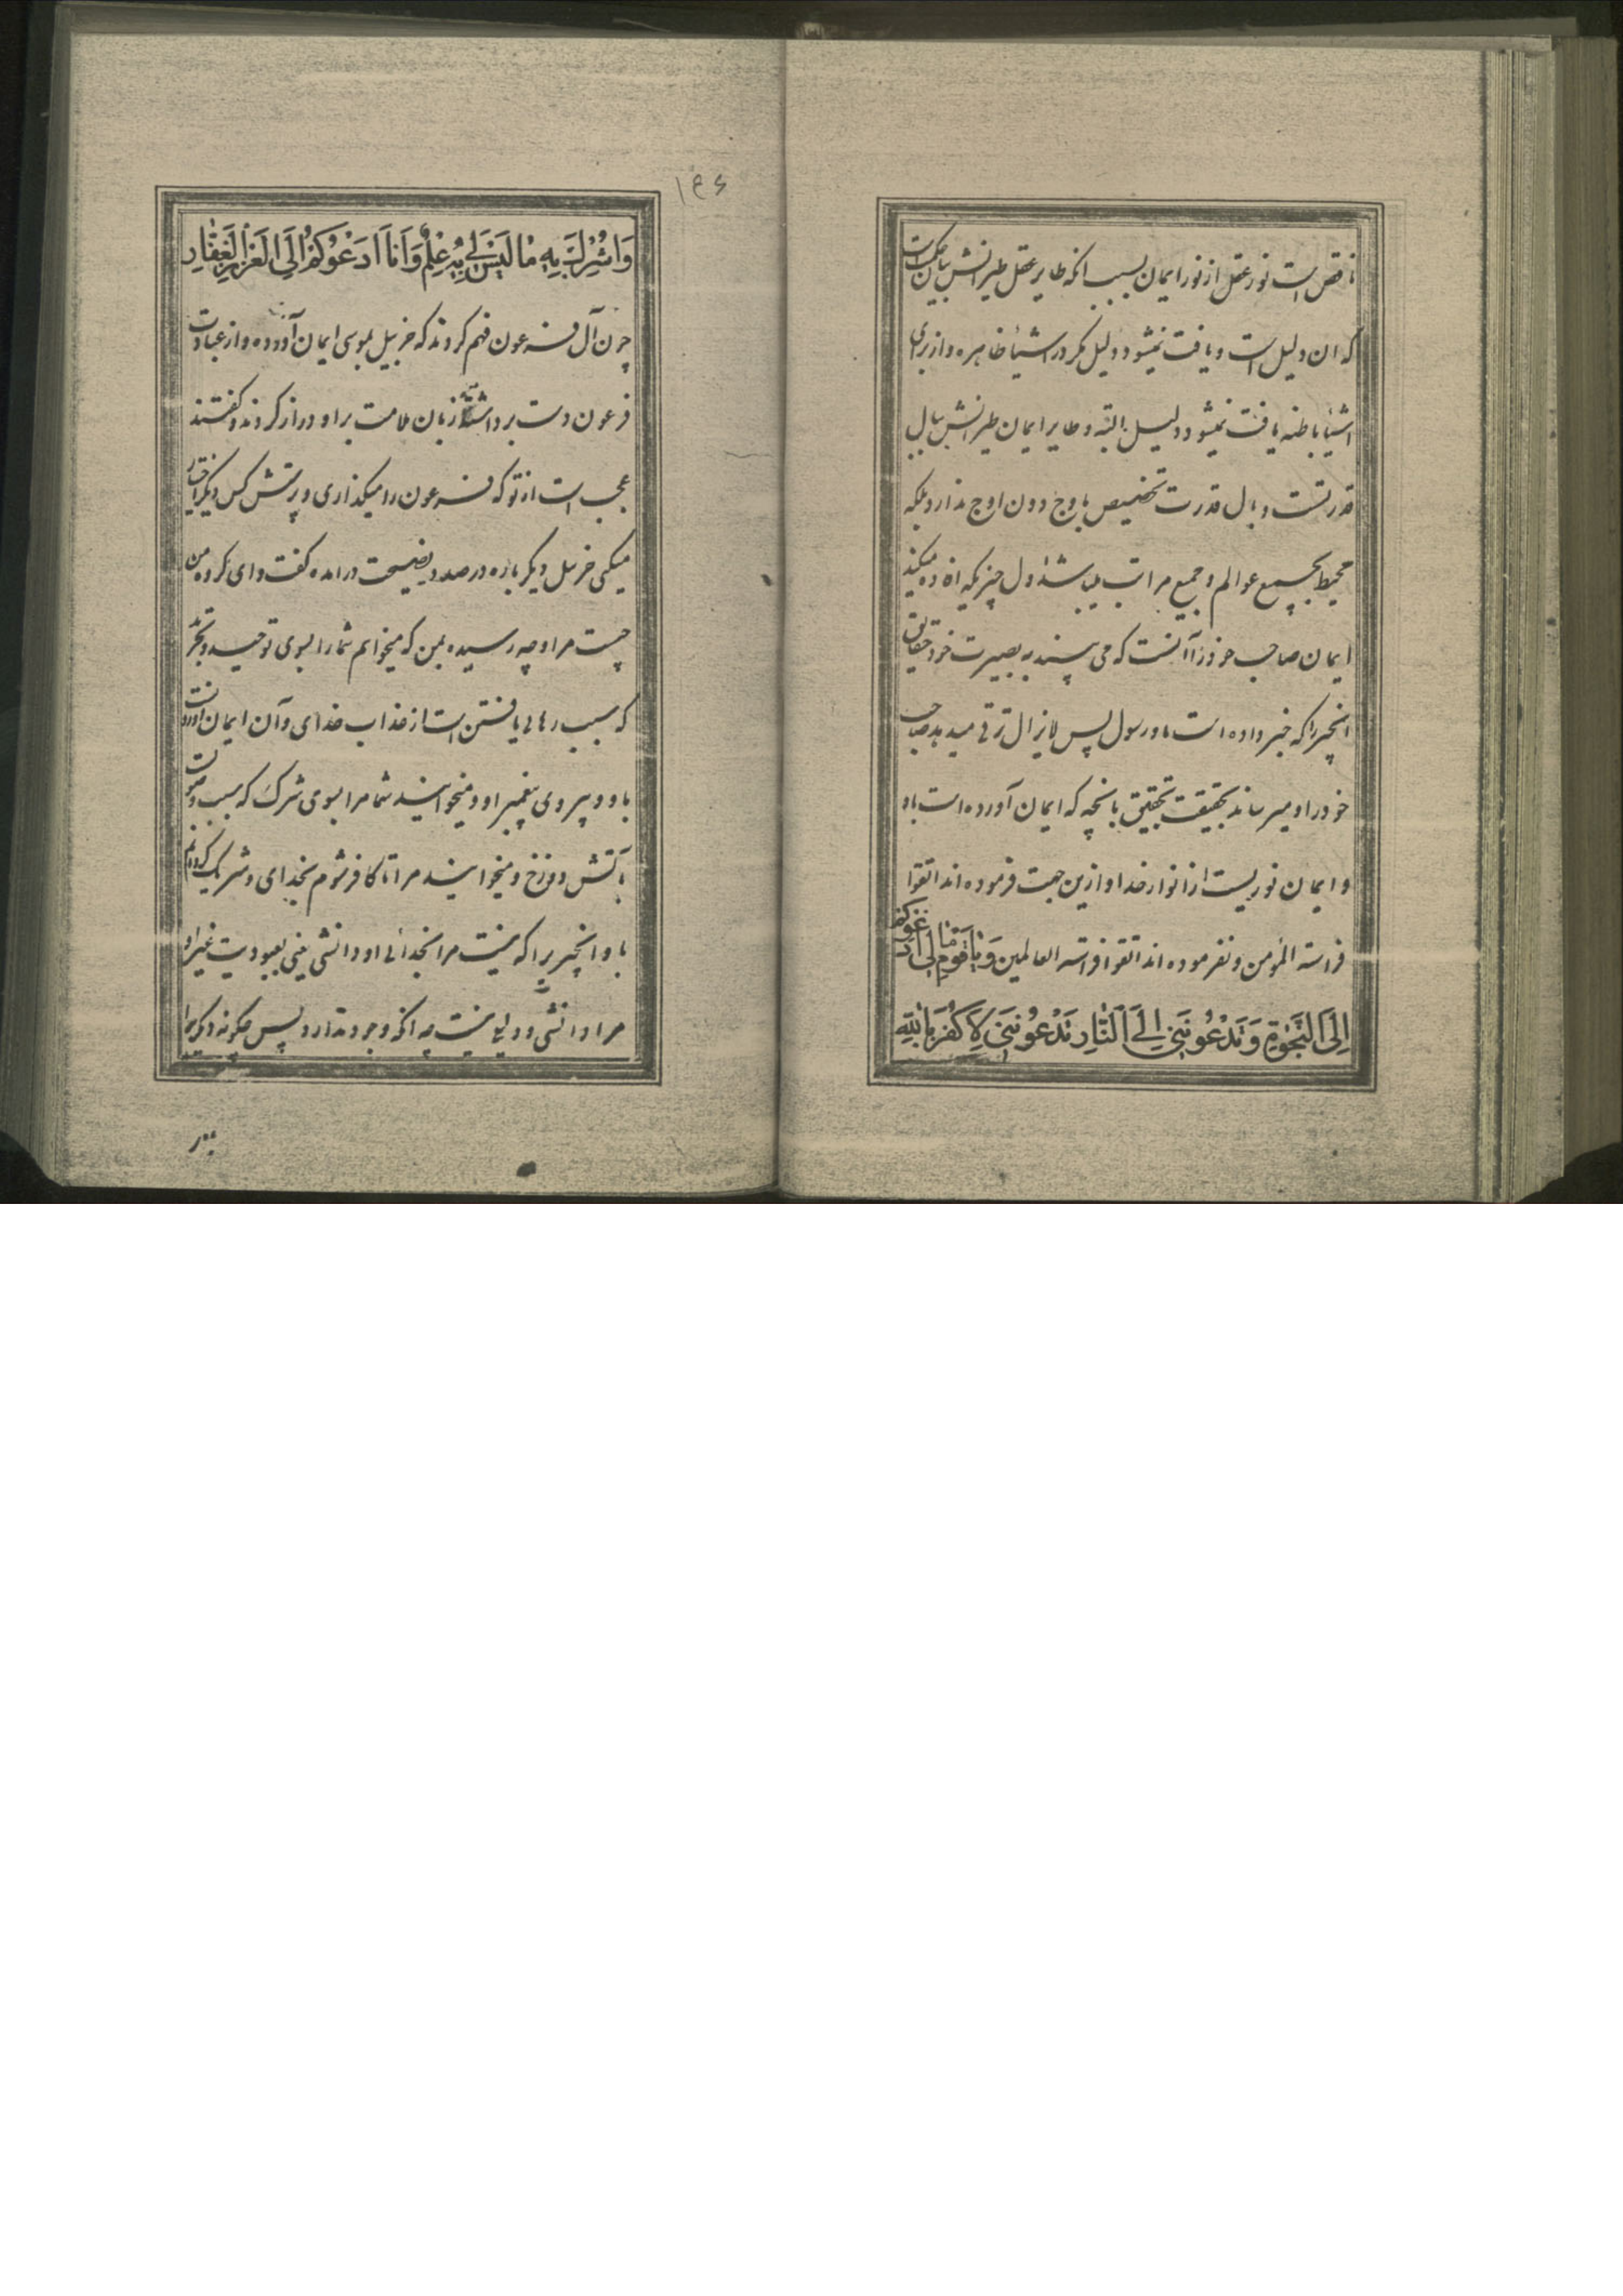 ناقص است نور عقل از نور ایمان بسبب انکه طایر عقل طیرانش ببال حکمت
که ان دلیل است و یافت نمیشود دلیل مکر در اشیأ ظاهره و از برای
اشیأ باطنه یافت نمیشود دلیل البته و طایر ایمان طیرانش ببال
قدرتست و بال قدرت تخصیص باوج دون اوج ندارد بلکه
محیط بجمیع عوالم و جمیع مراتب میباشد اول چیزیکه افاده میکند
ایمان صاحب خود را آنست که می بیند به بصیرت خود حقایق
انچیز را که خبر داده است باو رسول پس لایزال ترقی میدهد صاحب
خود را و میرساند بحقیقت تحقیق بانچه که ایمان آورده است باو
و ایمان نوریست از انوار خدا و ازین جهت فرموده اند اتقوا
فراسة المؤمن و نفرموده اند اتقوا فراسة العالمین وَیَا قَوْمِ مَا لِی اَدْعُوکُمْ
اِلَی النَّجٰوةِ وَتَدْعُونَنِی اِلَی النَّارِ تَدْعُونَنِی لِاَکْفُرَ بِاللّٰهِ
۱۴۶
وَاُشْرِکَ بِهِ مَا لَیْسَ لِی بِهِ عِلْمٌ وَاَنَا اَدْعُوکُمْ اِلَی الْعَزِیزِ الْغَفَّارِ
چون آل فرعون فهم کردند که خربیل بموسی ایمان آورده و از عبادت
فرعون دست برداشته زبان ملامت براو دراز کردند و کفتند
عجب است از تو که فرعون را میکذاری و پرستش کس دیکر اختیار
میکنی خربیل دیکر باره در صدد نصیحت درامده کفت و ای کروه من
چیست مرا و چه رسیده بمن که میخوانم شما را بسوی توحید و
که سبب رهایی یافتن است از عذاب خدای و آن ایمان آوردنست
باو و پیروی پیغمبر او و میخوانید شما مرا بسوی شرک که سبب دخولست
بآتش دوزخ و میخوانید مرا تا کافر شوم بخدای و شریک کردانم
باو انچیزیرا که نیست مرا بخدائی او دانشی یعنی بمعبودیت غیر او
مرا دانشی و دلیلی نیست چه انکه وجود ندارد پس چکونه دیکریرا